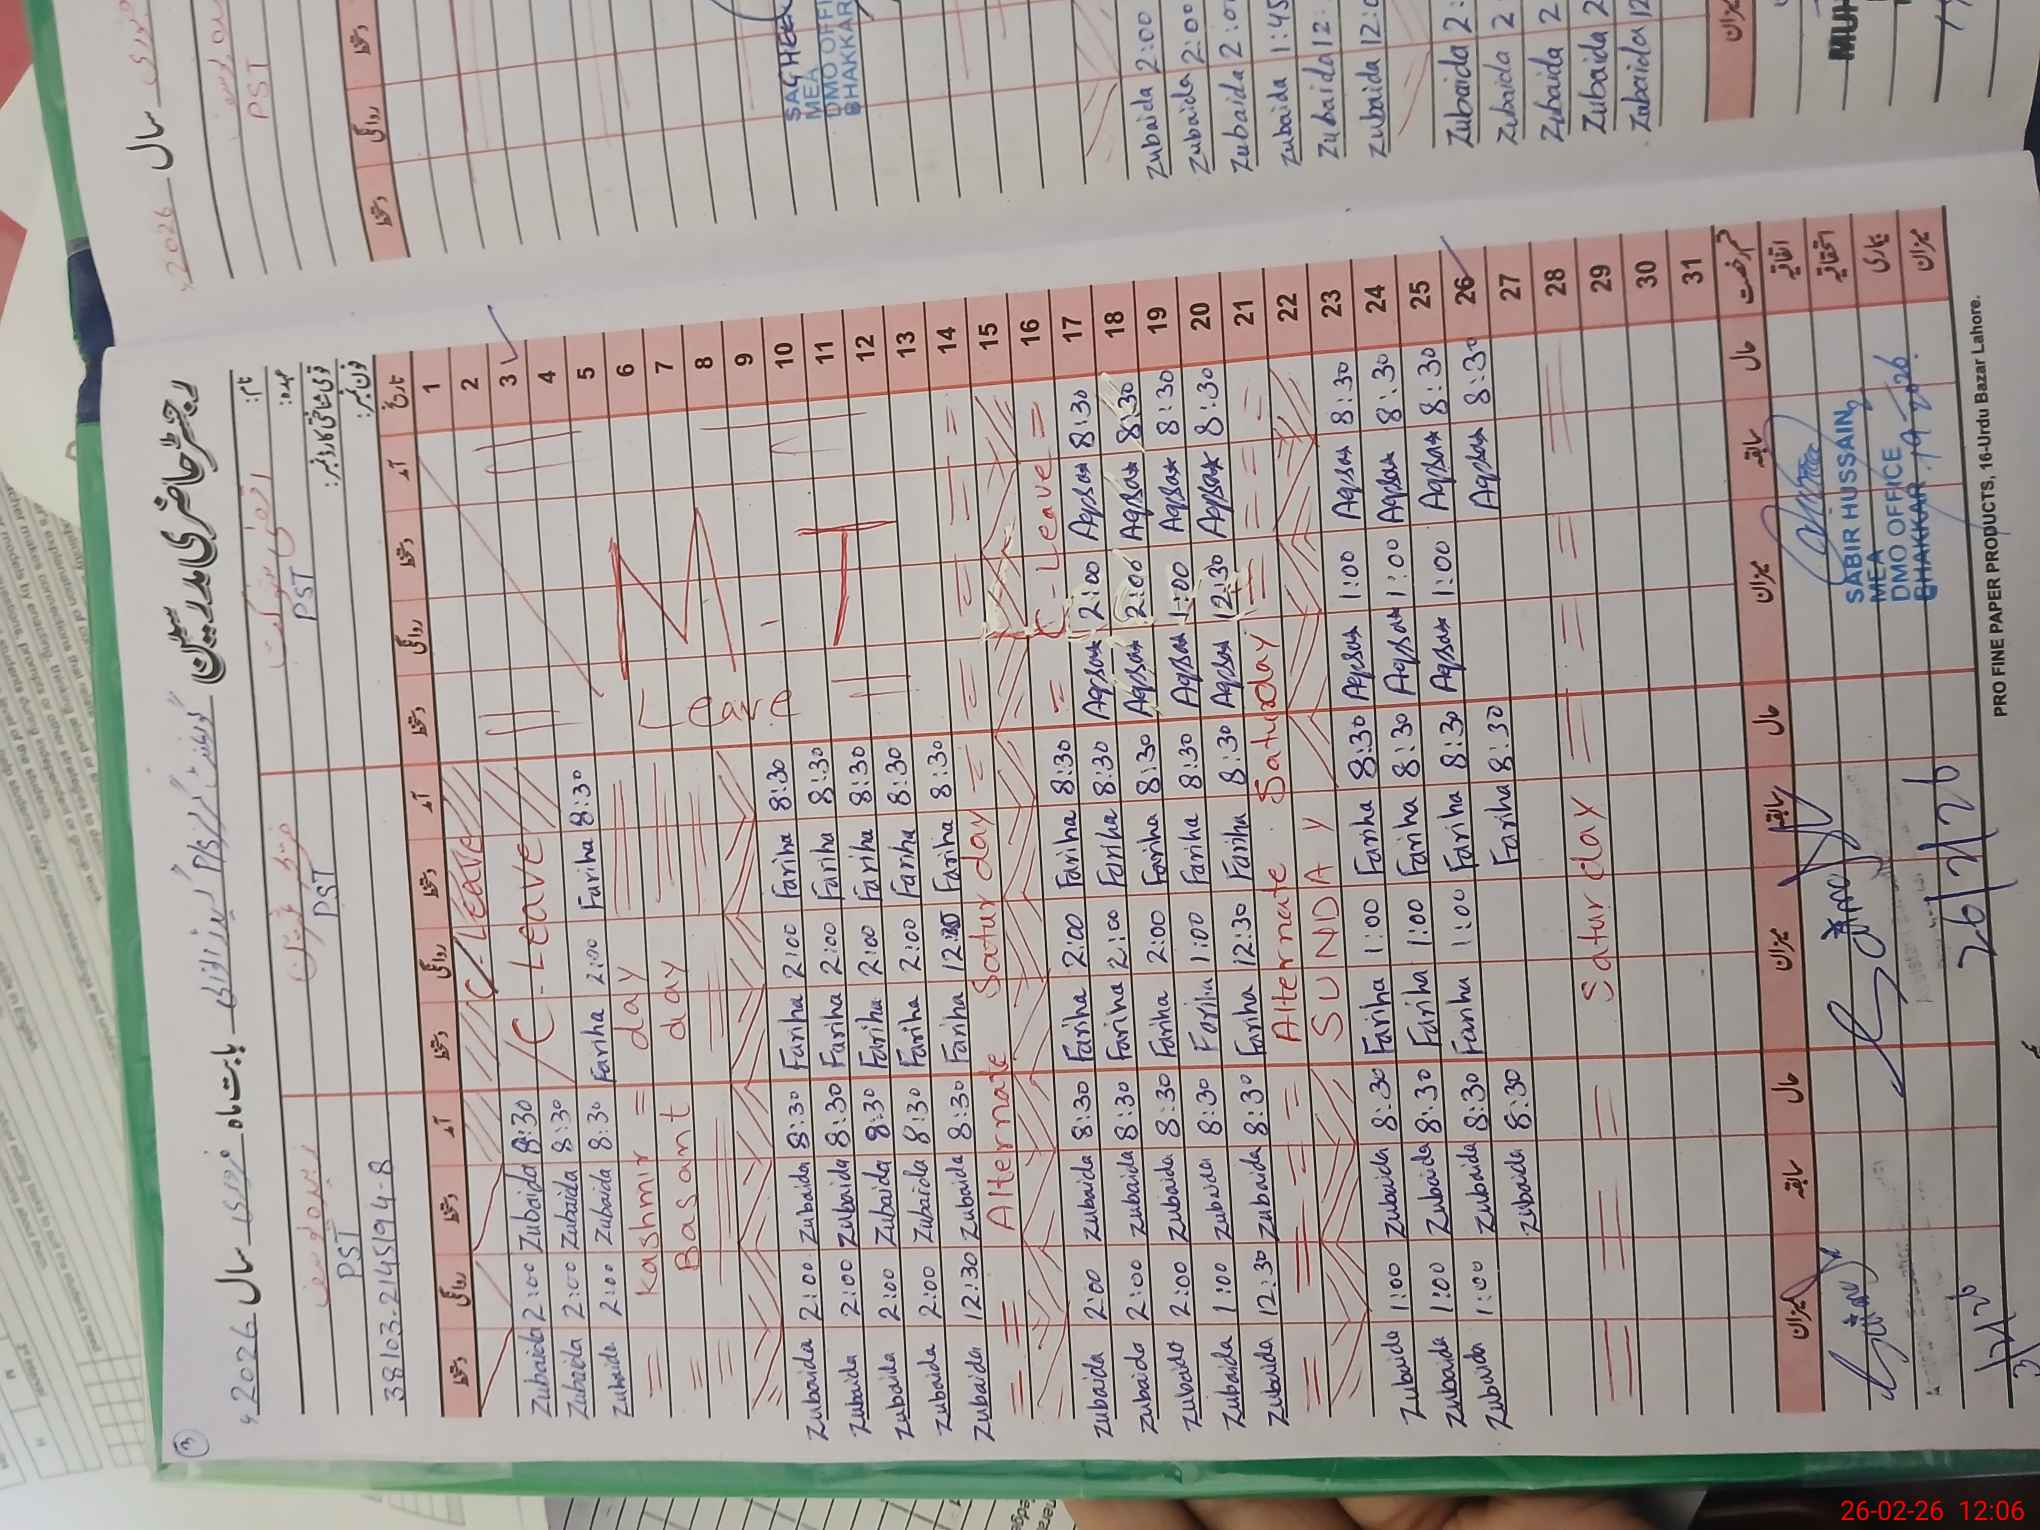 رجسٹر حاضری مدرسین
بابت ماہ فروری سال 2026ء
نام:
عہدہ: PST PST PST
قومی شناختی کارڈ نمبر: 38103-2145194-8
فون نمبر:
تاریخ آمد دستخط روانگی دستخط آمد دستخط روانگی دستخط آمد دستخط روانگی دستخط
1
2 C/Leave
3 C-Leave 8:30 Zubaida 2:00 Zubaida
4 8:30 Zubaida 2:00 Zubaida
5 8:30 Fariha 2:00 Fariha 8:30 Zubaida 2:00 Zubaida
6 Kashmir day
7 Basant day
8
9
M.T
Leave
10 8:30 Fariha 2:00 Fariha 8:30 Zubaida 2:00 Zubaida
11 8:30 Fariha 2:00 Fariha 8:30 Zubaida 2:00 Zubaida
12 8:30 Fariha 2:00 Fariha 8:30 Zubaida 2:00 Zubaida
13 8:30 Fariha 2:00 Fariha 8:30 Zubaida 2:00 Zubaida
14 8:30 Fariha 12:30 Fariha 8:30 Zubaida 12:30 Zubaida
15 Alternate Saturday
16 C-Leave
17 8:30 Aqsa 2:00 Aqsa 8:30 Fariha 2:00 Fariha 8:30 Zubaida 2:00 Zubaida
18 8:30 Aqsa 2:00 Aqsa 8:30 Fariha 2:00 Fariha 8:30 Zubaida 2:00 Zubaida
19 8:30 Aqsa 1:00 Aqsa 8:30 Fariha 2:00 Fariha 8:30 Zubaida 2:00 Zubaida
20 8:30 Aqsa 12:30 Aqsa 8:30 Fariha 1:00 Fariha 8:30 Zubaida 1:00 Zubaida
21 8:30 Fariha 12:30 Fariha 8:30 Zubaida 12:30 Zubaida
22 Alternate Saturday
23 SUNDAY
24 8:30 Aqsa 1:00 Aqsa 8:30 Fariha 1:00 Fariha 8:30 Zubaida 1:00 Zubaida
25 8:30 Aqsa 1:00 Aqsa 8:30 Fariha 1:00 Fariha 8:30 Zubaida 1:00 Zubaida
26 8:30 Aqsa 1:00 Aqsa 8:30 Fariha 1:00 Fariha 8:30 Zubaida 1:00 Zubaida
27 8:30 Aqsa 8:30 Fariha 8:30 Zubaida
28
29 Saturday
30
31
قسم رخصت حال سابقہ میزان حال سابقہ میزان حال سابقہ میزان
اتفاقیہ
بیماری
میزان
SABIR HUSSAIN
MEA
DMO OFFICE
BHAKKAR
19-2-26
26/2/26
PRO FINE PAPER PRODUCTS, 16-Urdu Bazar Lahore.
سال 2026ء
PST
دستخط روانگی دستخط
MEA
DMO OFFI
BHAKKAR
Zubaida 2:00
Zubaida 2:00
Zubaida 2:0
Zubaida 1:45
Zubaida 12:
Zubaida 12:0
Zubaida 2:
Zubaida 2
Zubaida 2
Zubaida 2
Zubaida 12
میزان
MUH
26-02-26 12:06